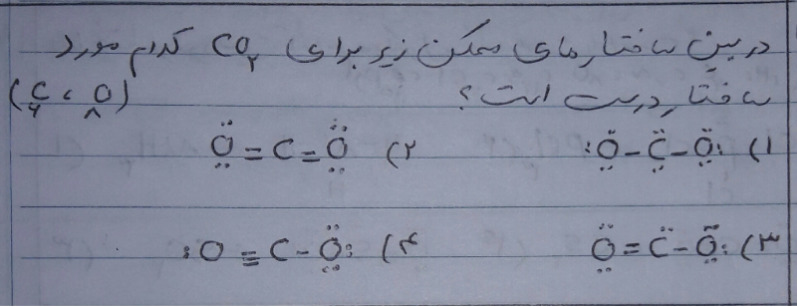 در بین ساختارهای ممکن زیر برای CO₂ کدام مورد
ساختار درست است؟ (₆C ، ₈O)
۱) :Ö̤-C̈-Ö̤: ۲) Ö̤=C=Ö̤
۳) Ö̤=C̈-Ö̤: ۴) :O≡C-Ö̤: